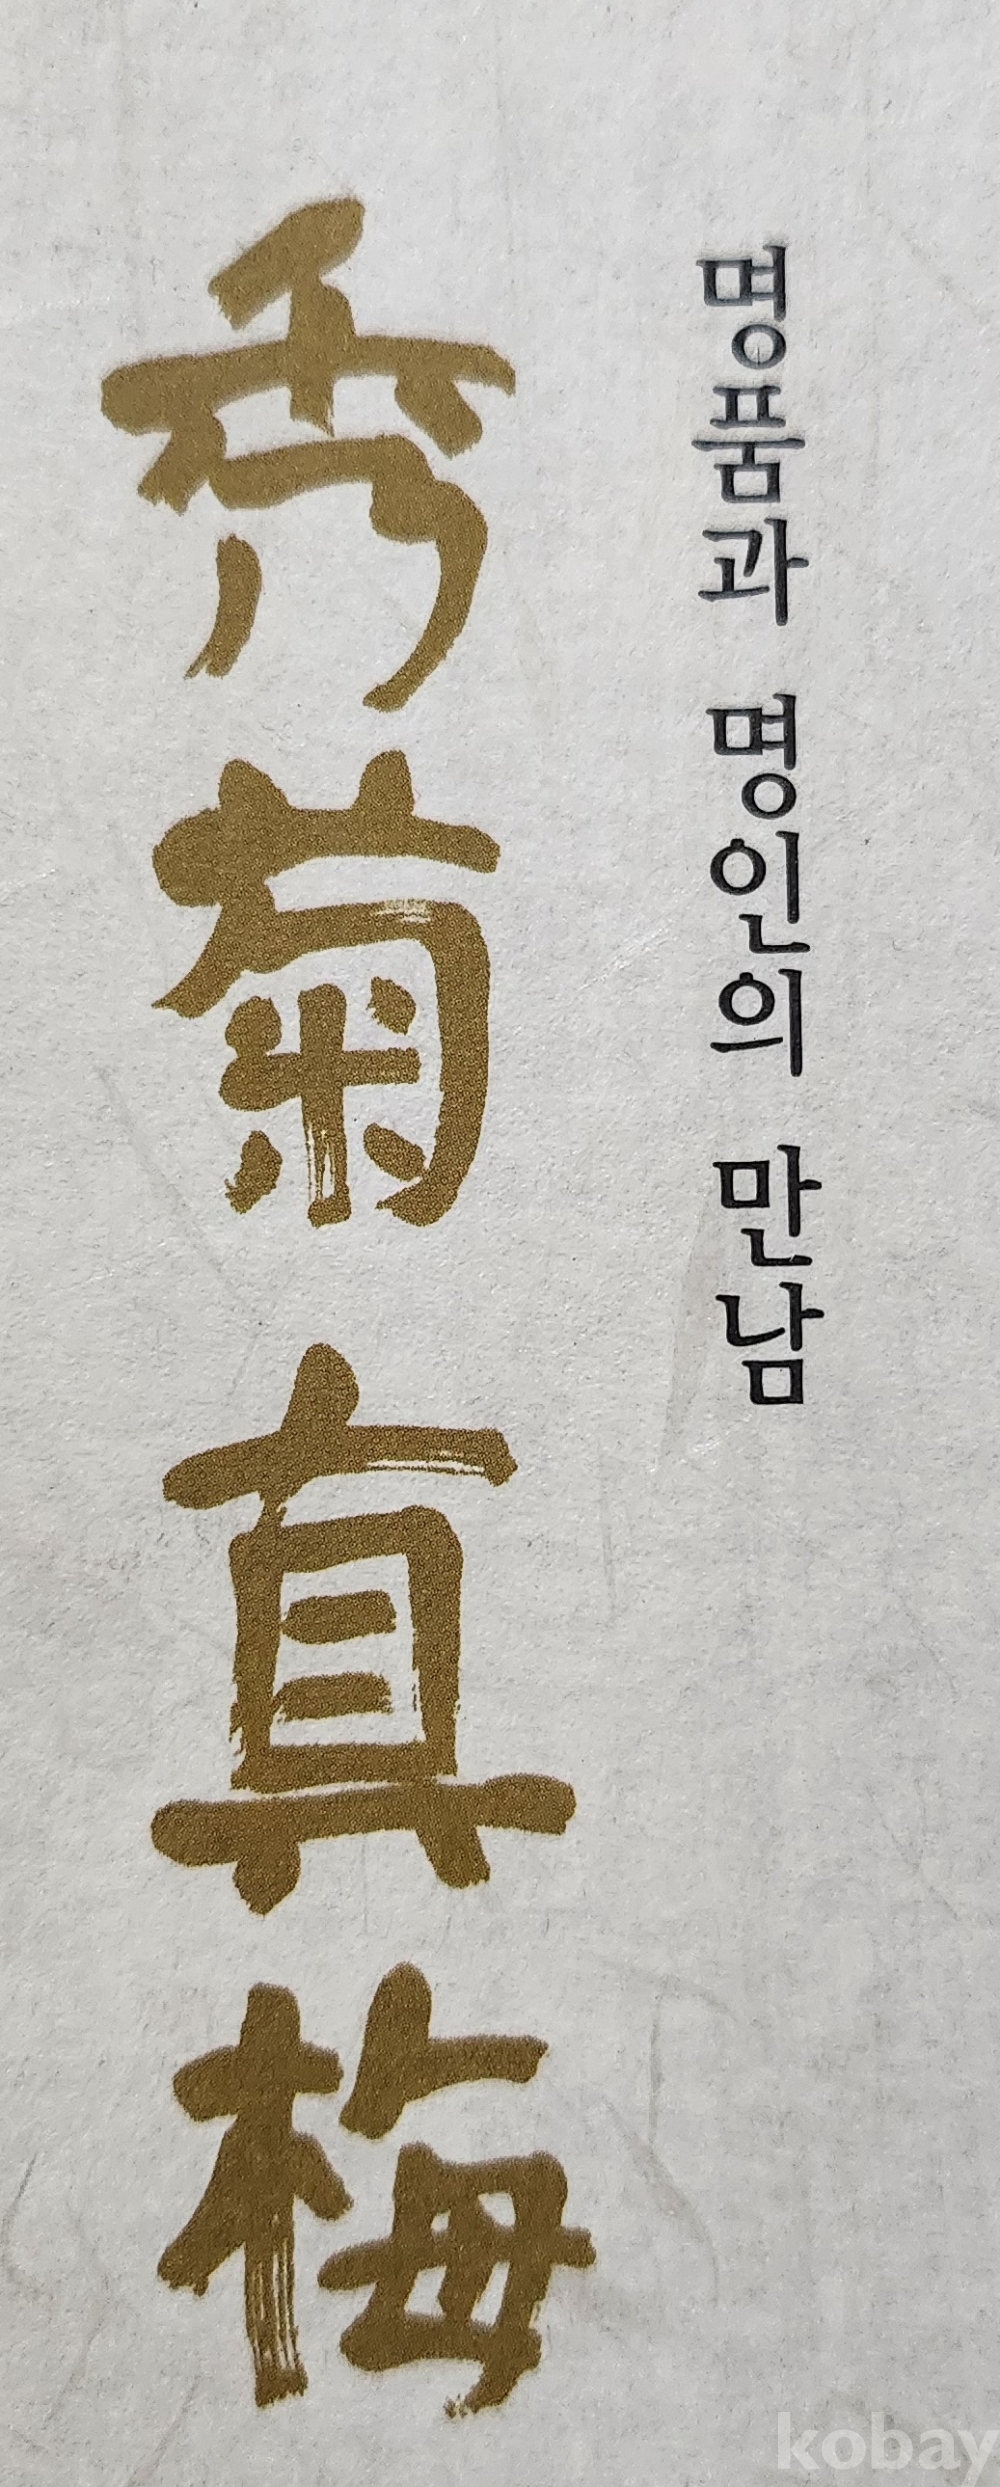 명품과 명인의 만남
秀菊真梅
kobay